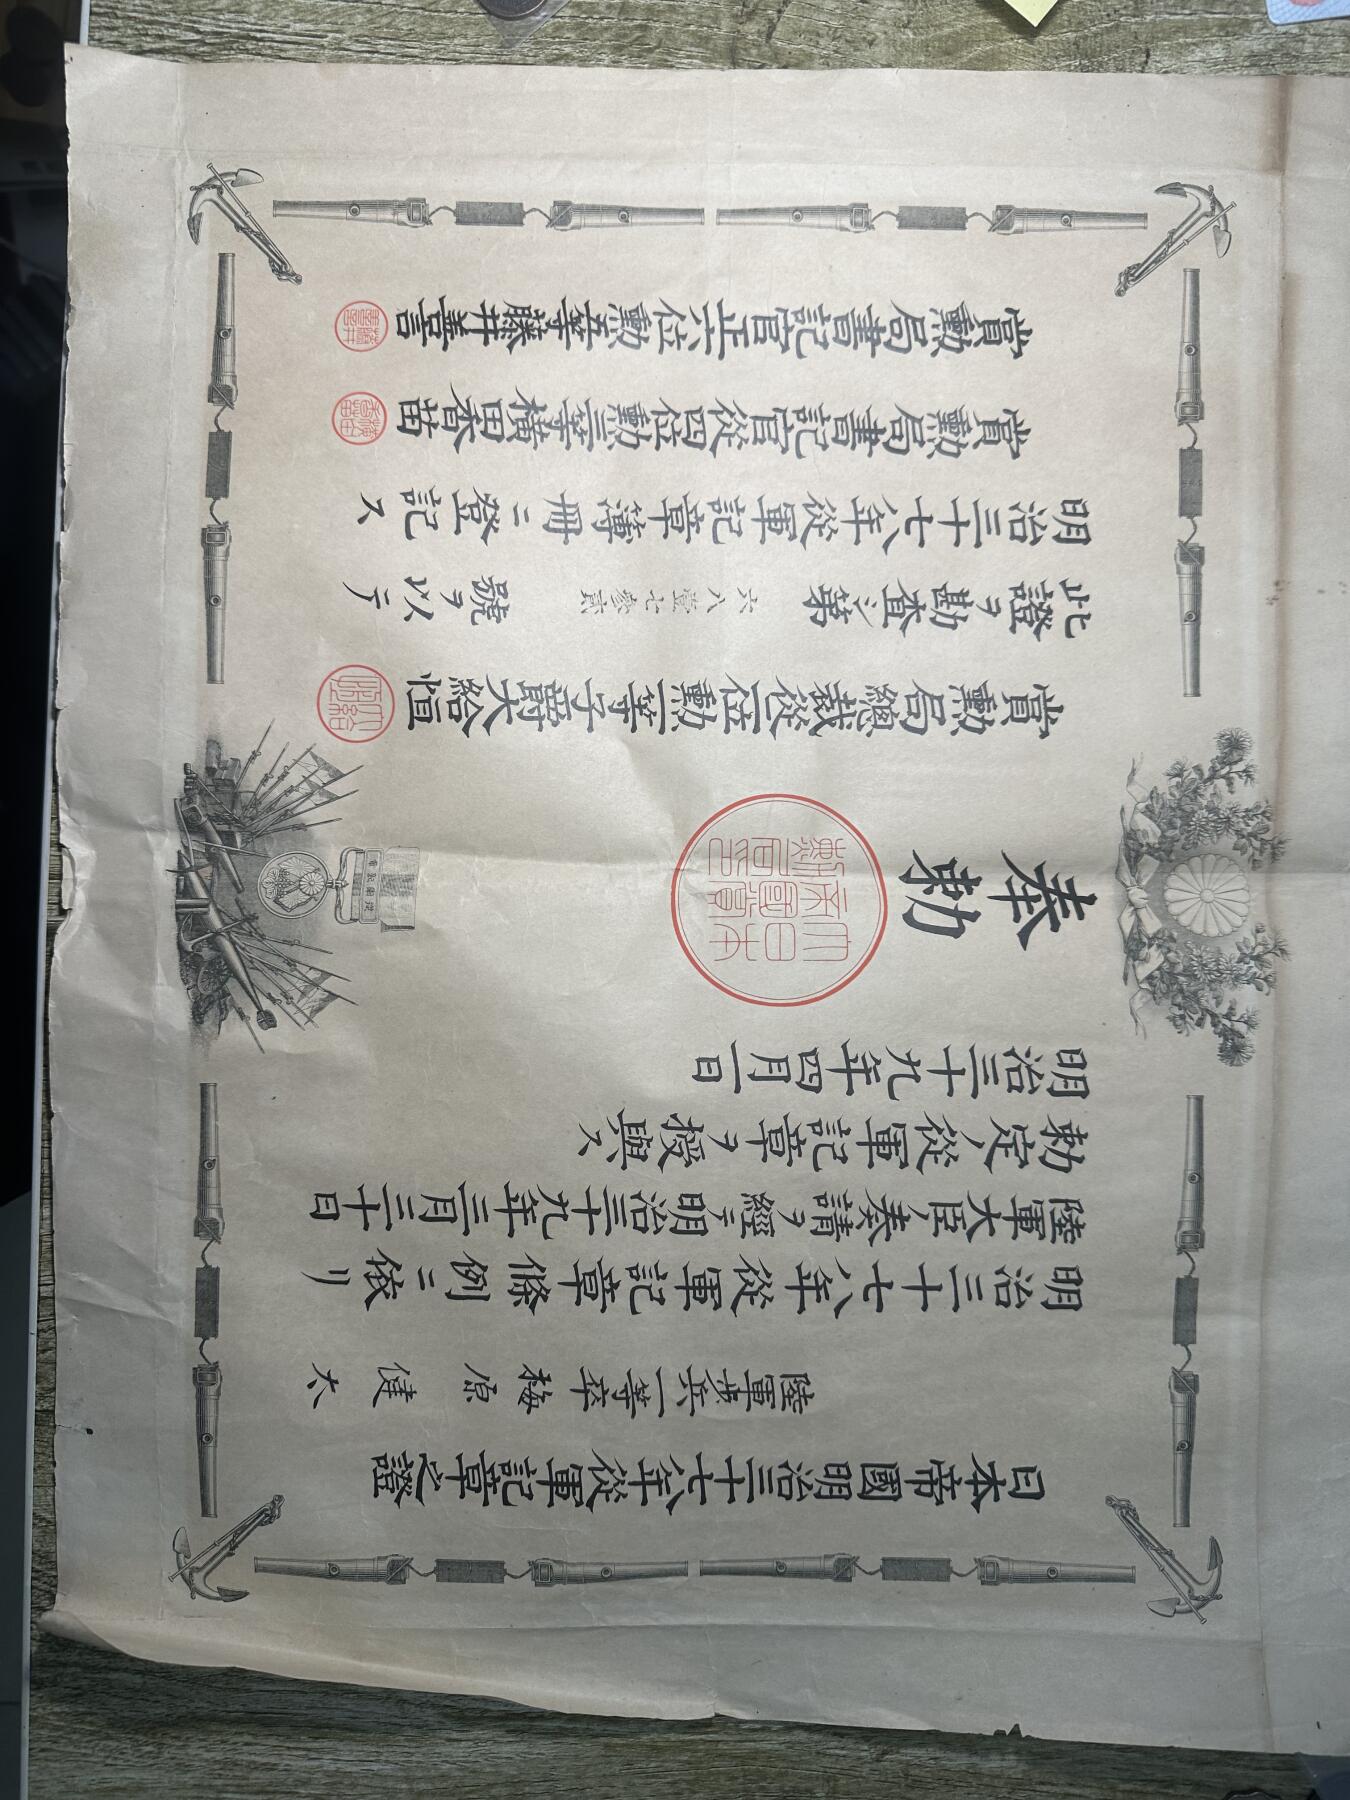 日本帝國明治三十七八年從軍記章之證
陸軍歩兵一等卒梅原健太
明治三十七八年從軍記章條例ニ依リ
陸軍大臣ノ奏請ヲ經テ明治三十九年三月三十日
勅定ノ從軍記章ヲ授與ス
明治三十九年四月一日
奉勅
大日本
帝國賞
勲局印
賞勲局總裁從二位勲一等子爵大給恒
此證ヲ勘査シ第六八壹七參貳號ヲ以テ
明治三十七八年從軍記章簿冊ニ登記ス
賞勲局書記官從四位勲三等横田香苗
賞勲局書記官正六位勲五等藤井善言